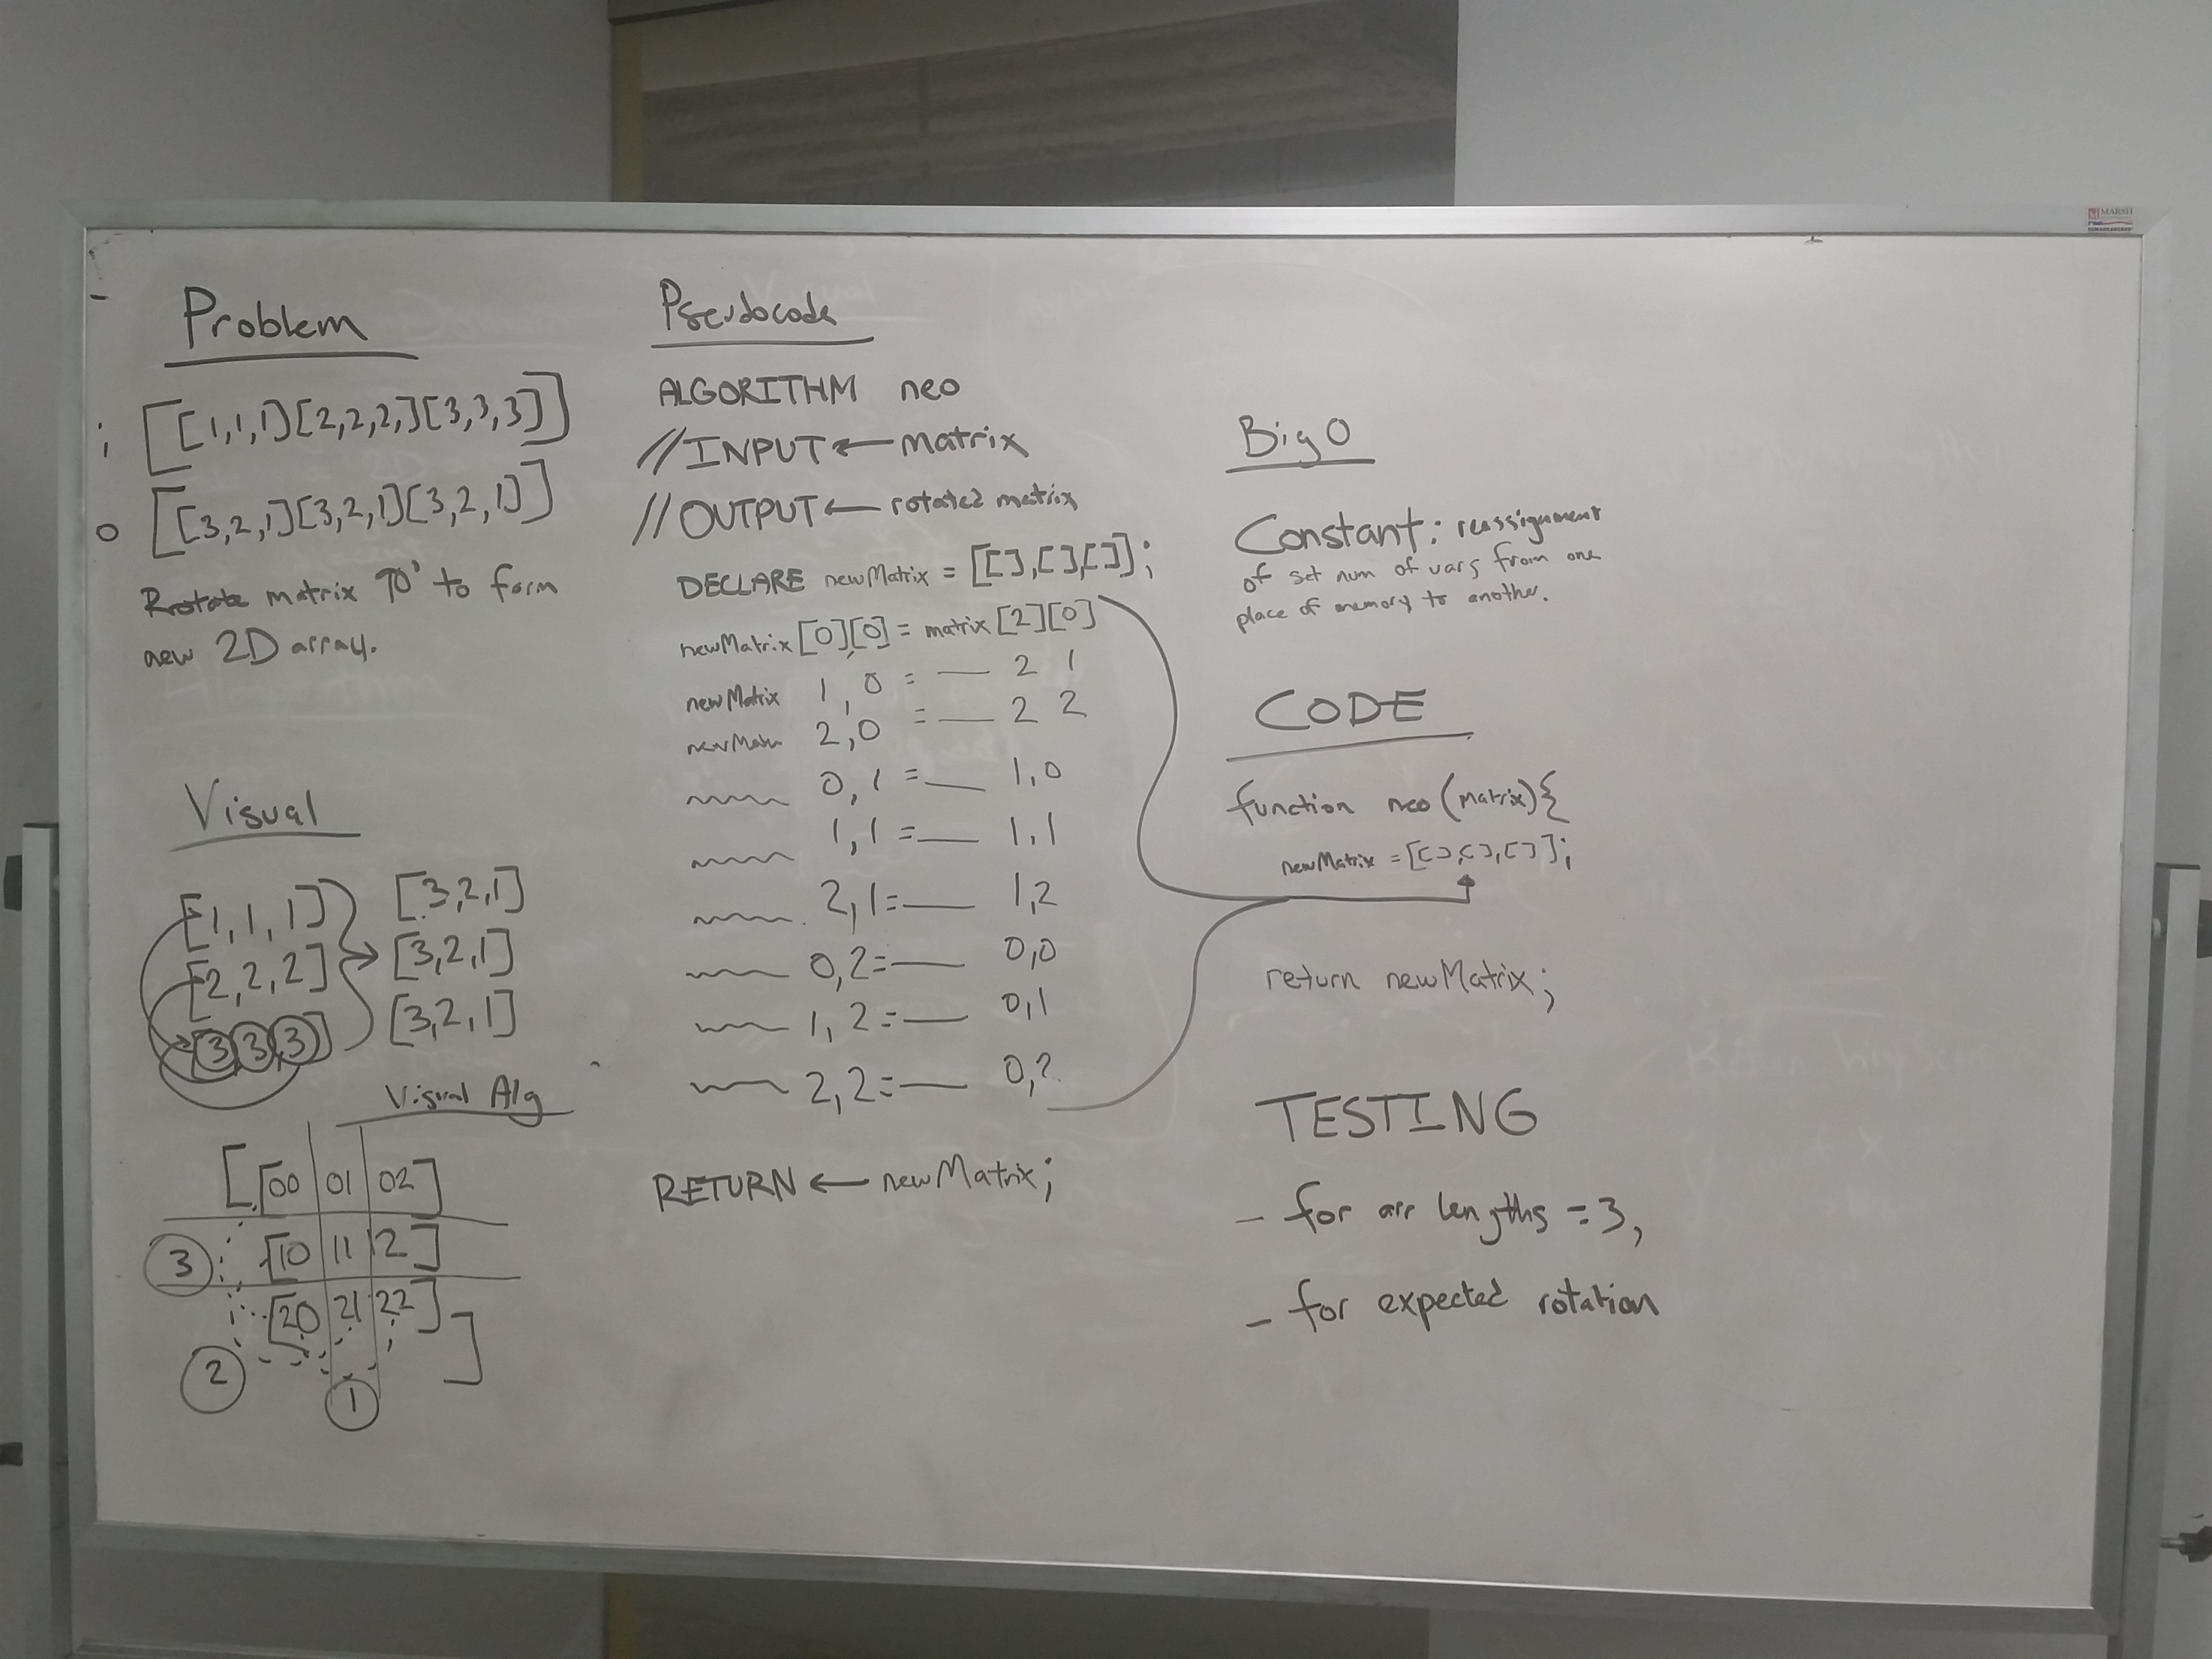 Problem
i [[1,1,1][2,2,2,][3,3,3]]
o [[3,2,1][3,2,1][3,2,1]]
Rotate matrix 90° to form
new 2D array.
Visual
[1,1,1] [3,2,1]
[2,2,2] [3,2,1]
[3 3 3] [3,2,1]
Visual Alg
[[00 01 02]
3 [10 11 12]
[20 21 22]]
2
1
Pseudocode
ALGORITHM neo
//INPUT ← matrix
//OUTPUT ← rotated matrix
DECLARE newMatrix = [[],[],[]];
newMatrix[0][0] = matrix[2][0]
newMatrix 1,0 = — 2 1
2,0 = — 2 2
0,1 = — 1,0
1,1 = — 1,1
2,1 = — 1,2
0,2 = — 0,0
1,2 = — 0,1
2,2 = — 0,2
RETURN ← newMatrix;
Big O
Constant: reassignment
of set num of vars from one
place of memory to another.
CODE
function neo (matrix){
newMatrix = [[],[],[]];
return newMatrix;
TESTING
- for arr lengths = 3,
- for expected rotation
MARSH